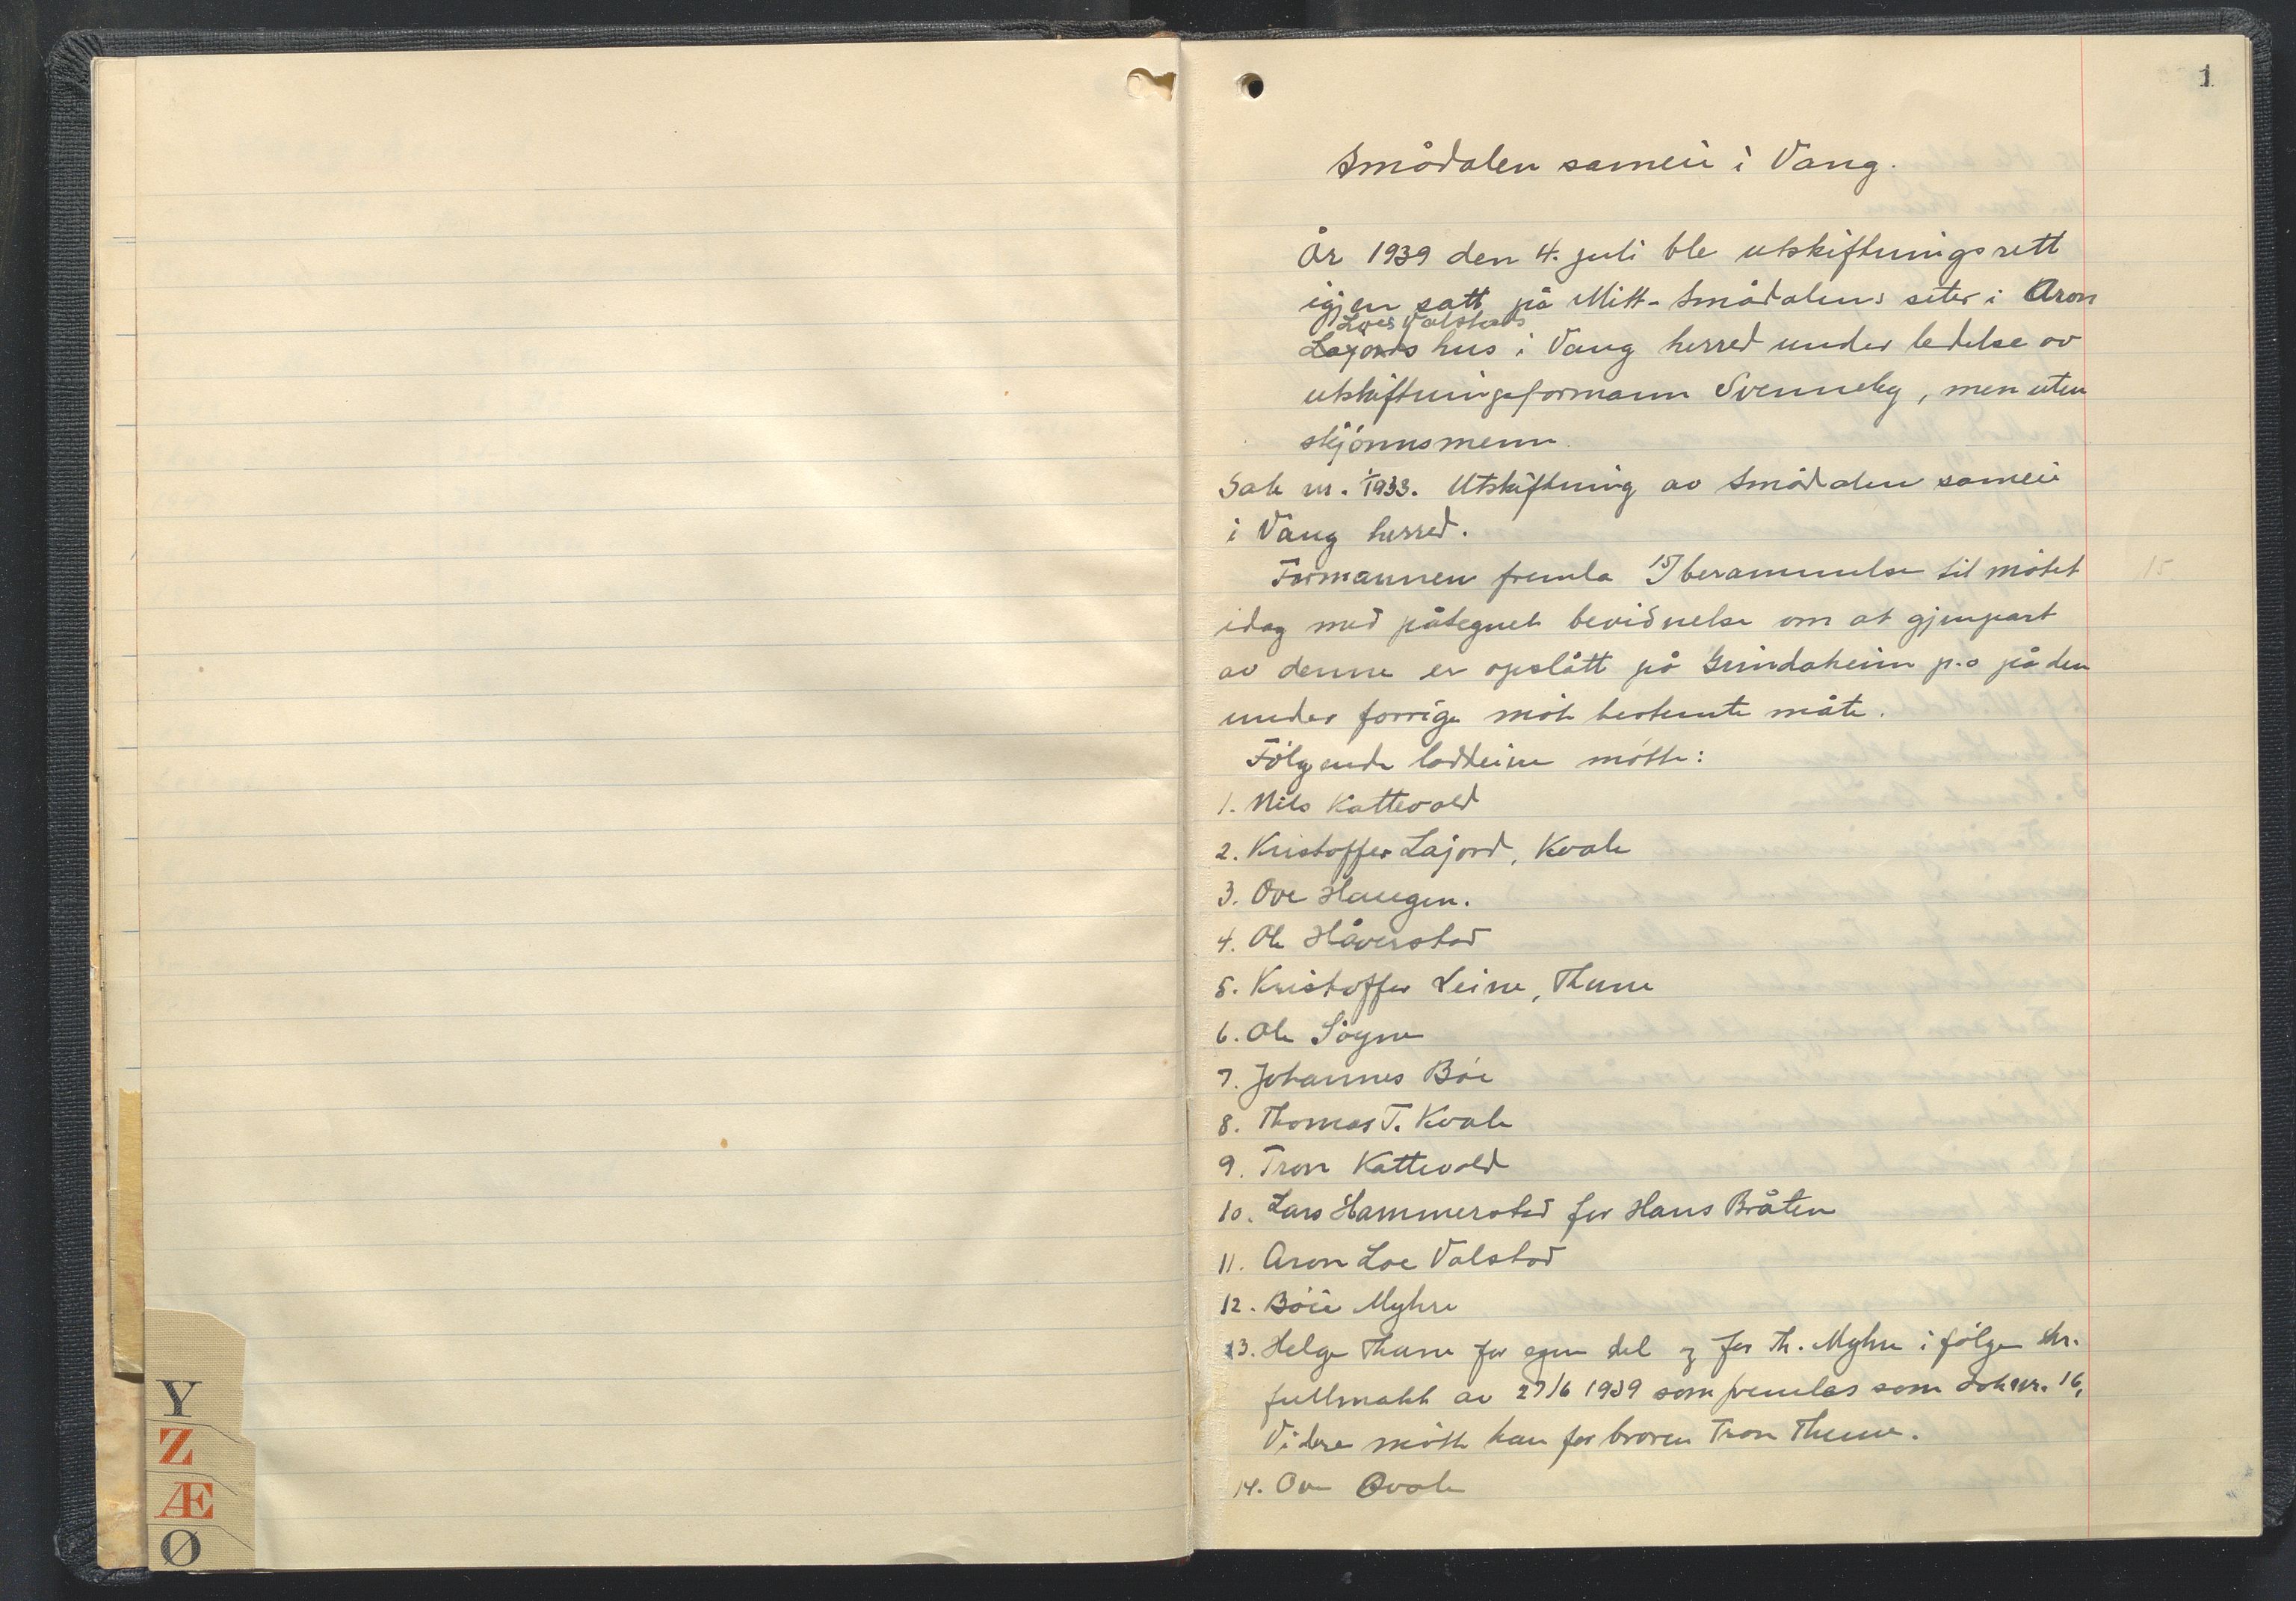 1
Smådalen sameie i Vang.
År 1939 den 4. juli ble utskiftningsrett
igjen satt på Mitt-Smådalens seter i Aron
Loes Valstads
Lajords hus i Vang herred under ledelse av
utskiftningsformann Svenneby, men uten
skjønnsmenn.
Sak nr. 1/1933. Utskiftning av Smådalen sameie
i Vang herred.
Formannen fremla 15) berammelse til møtet
15
idag med påtegnet bevidnelse om at gjenpart
av denne er opslått på Grindaheim p.o på den
under forrige møte bestemte måte.
Følgende loddeiere møtte:
1. Nils Kattevold
2. Kristoffer Lajord, Kvale
3. Ove Haugen.
4. Ole Håverstad
5. Kristoffer Leine, Thune
6. Ole Søyne
7. Johannes Bøe
8. Thomas T. Kvale
9. Tron Kattevold
10. Lars Hammerstad for Hans Bråten
11. Aron Loe Valstad
12. Bóie Myhre
13. Helge Thune for egen del og for Th. Myhre i følge skr.
fullmakt av 27/6 1939 som fremlas som dok nr. 16,
Videre møtte han for broren Tron Thune.
14. Ove Kvale
Y
Z
Æ
Ø